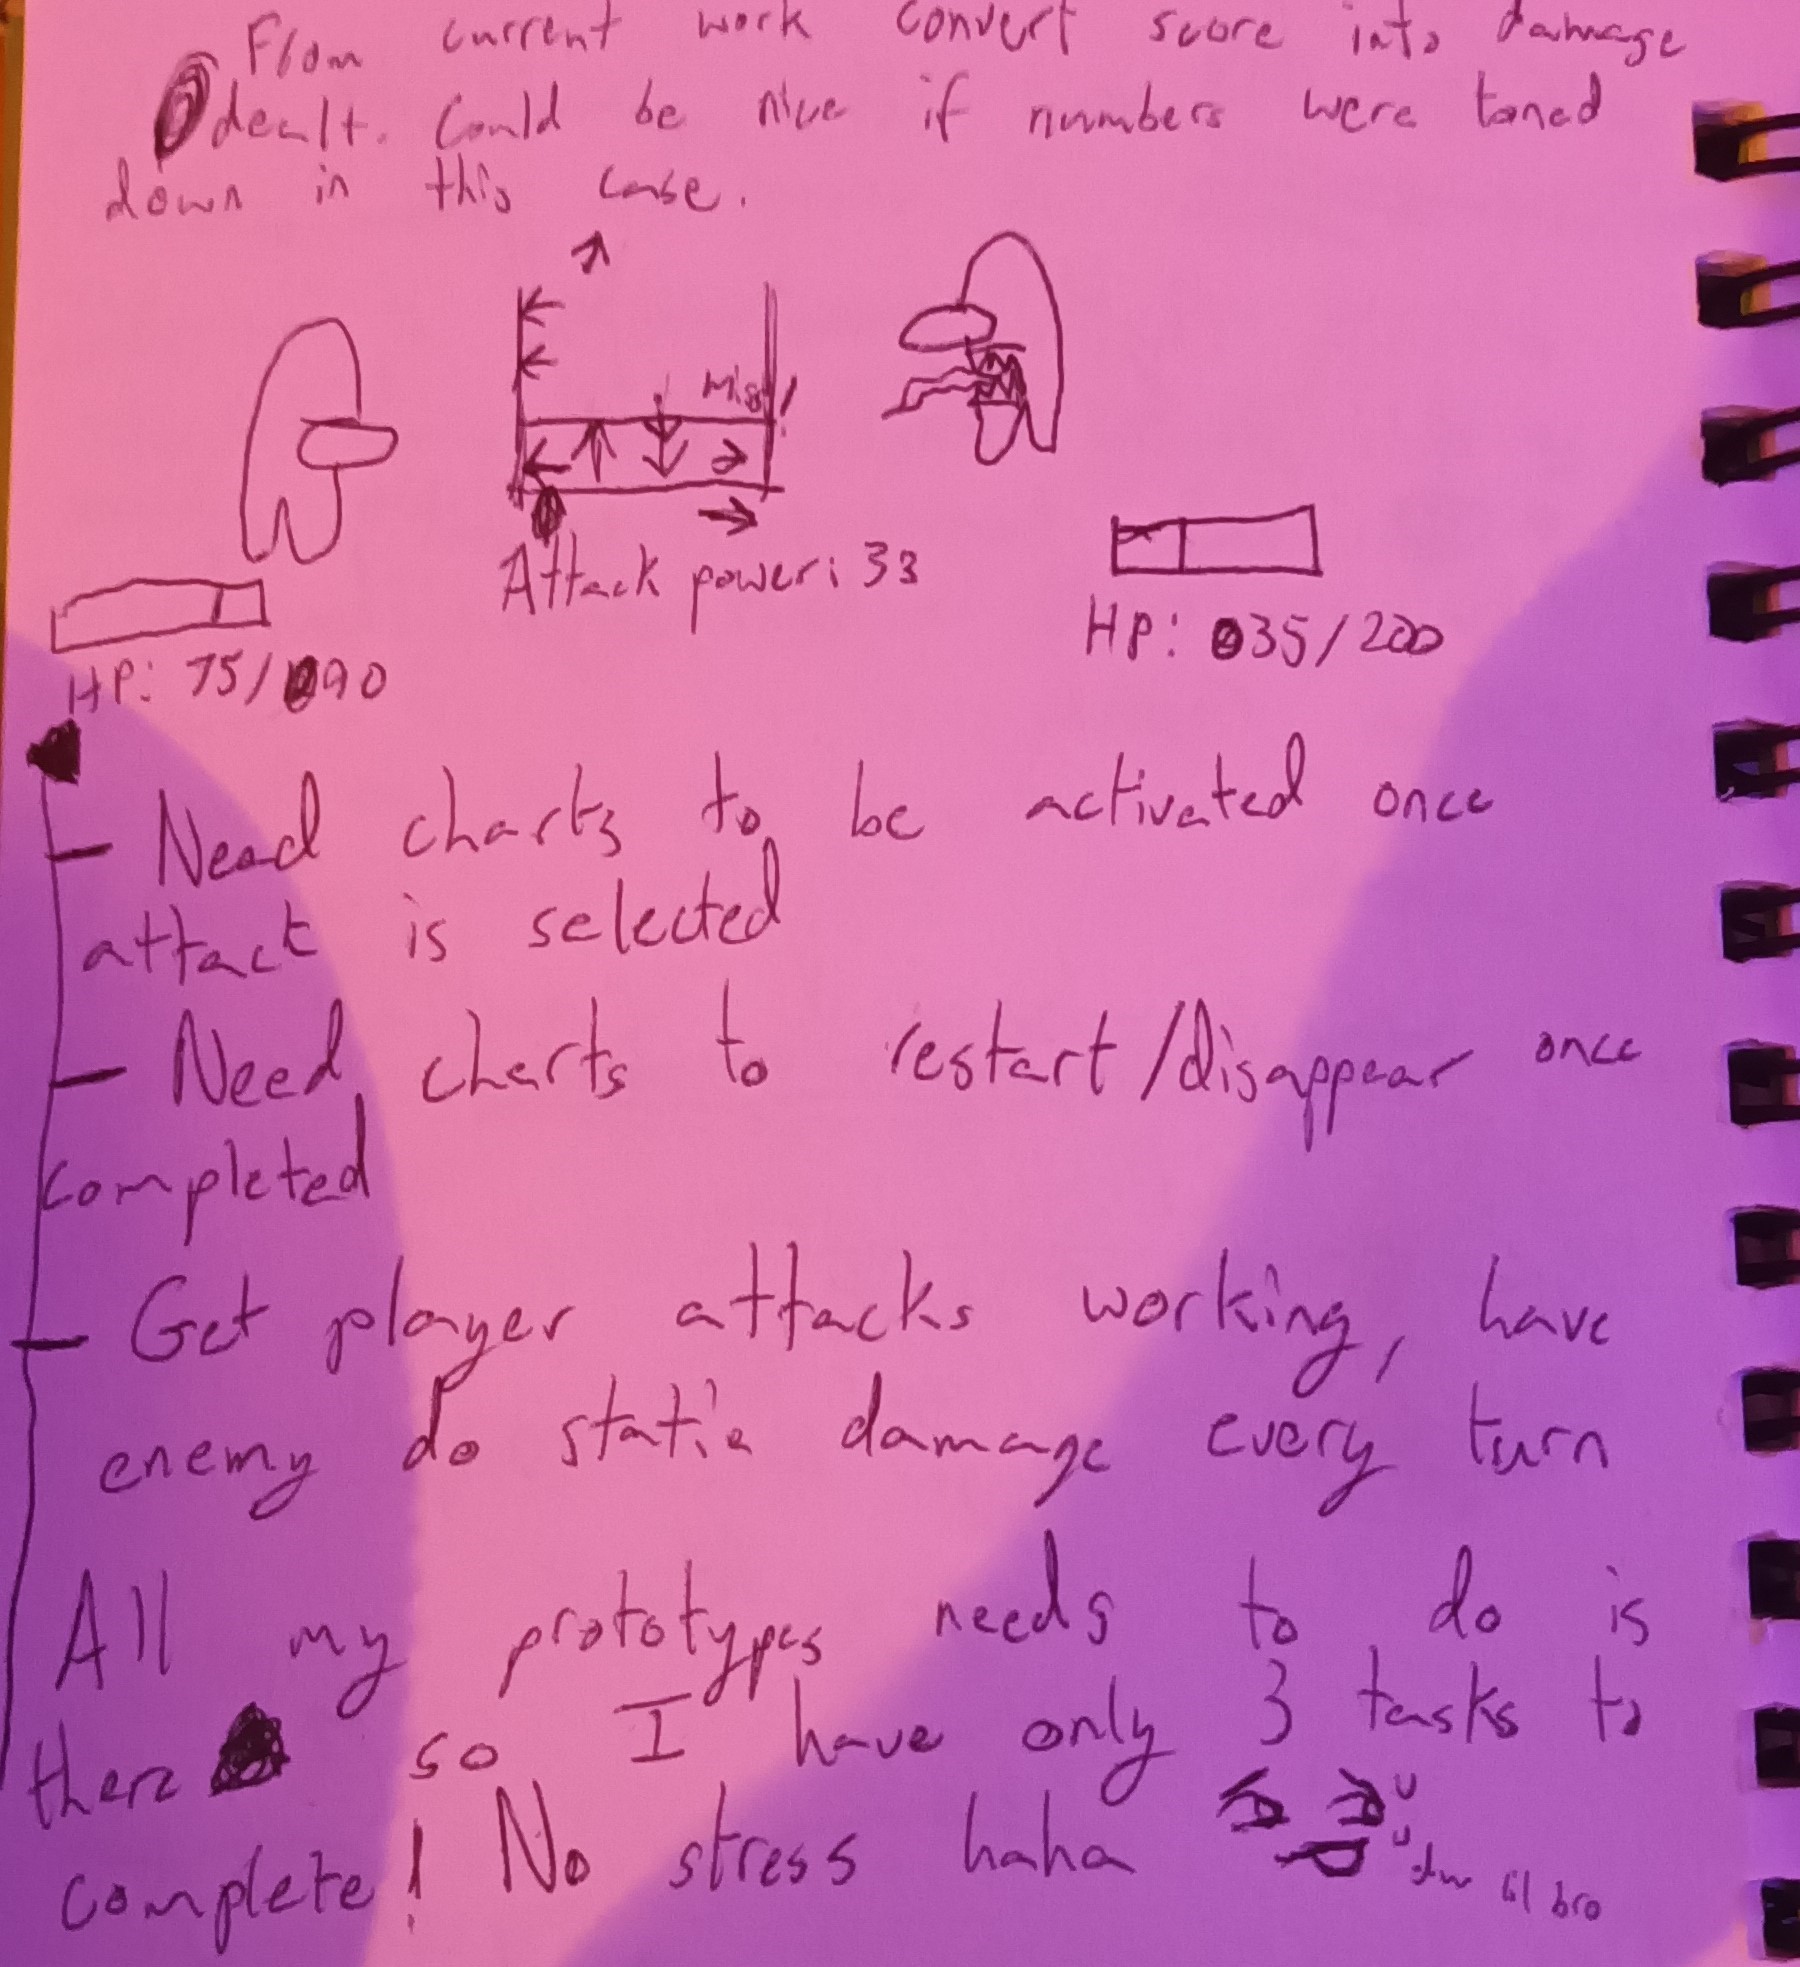 From current work convert score into damage
dealt. Could be nice if numbers were toned
down in this case.
Miss!
Attack power: 33
HP: 75/90
HP: 35/200
- Need charts to be activated once
attack is selected
- Need charts to restart/disappear once
completed
- Get player attacks working, have
enemy do static damage every turn
All my prototypes needs to do is
there so I have only 3 tasks to
complete! No stress haha
bro